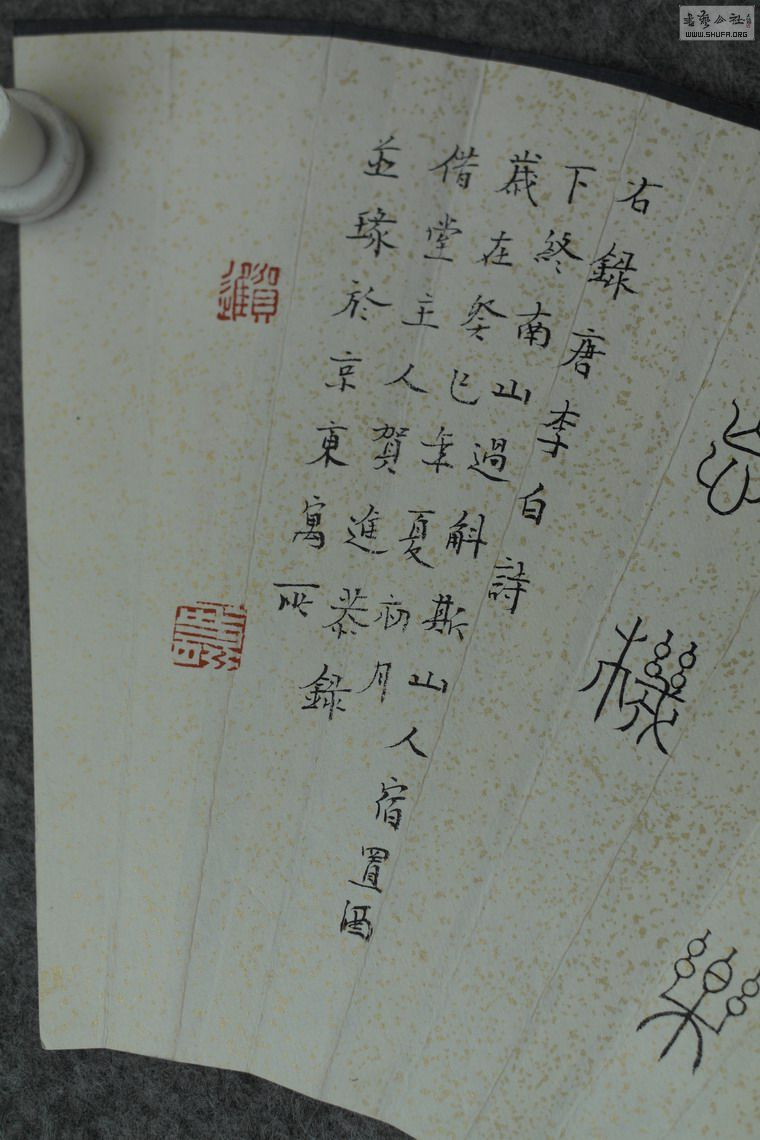 樂
忘機
右録唐李白詩
下終南山過斛斯山人宿置酒
歲在癸巳年夏初月
借堂主人賀進恭録
並瑑於京東寓所
賀進
書藝公社
WWW.SHUFA.ORG